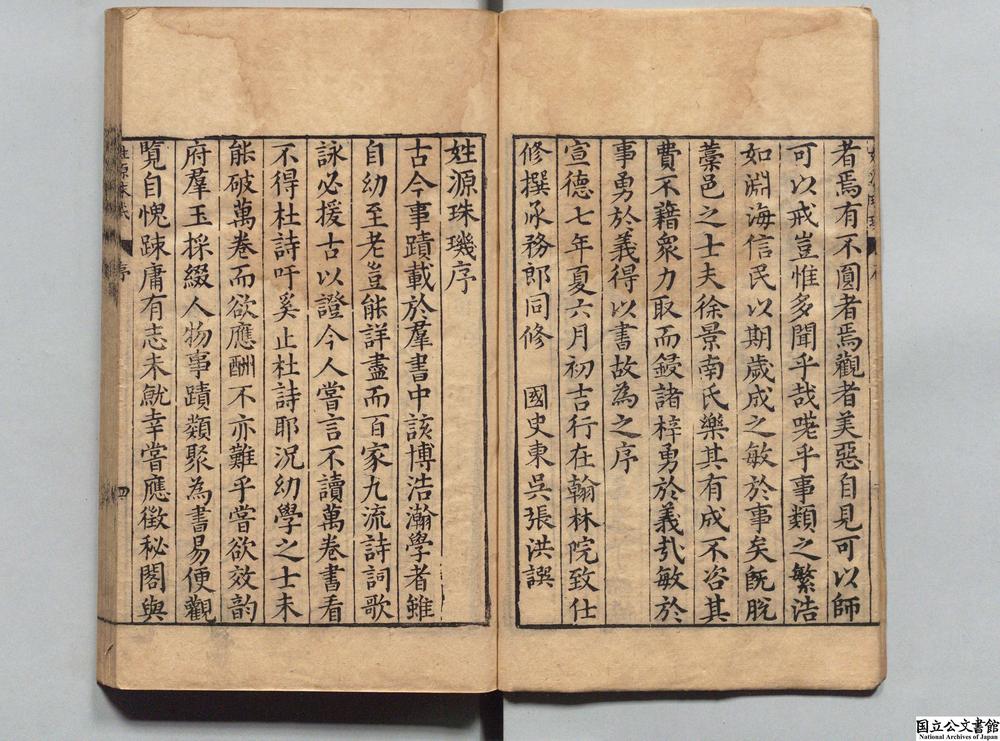 者焉有不圓者焉觀者美惡自見可以師
可以戒豈惟多聞乎哉嗟乎事類之繁浩
如淵海信民以期歲成之敏於事矣旣脫
藁邑之士夫徐景南氏樂其有成不吝其
費不藉衆力取而鋟諸梓勇於義㢤敏於
事勇於義得以書故為之序
宣德七年夏六月初吉行在翰林院致仕
修撰承務郎同修 國史東吳張洪譔
姓源珠璣序
古今事蹟載於羣書中該博浩瀚學者雖
自幼至老豈能詳盡而百家九流詩詞歌
詠必援古以證今人嘗言不讀萬卷書看
不得杜詩吁奚止杜詩耶況幼學之士未
能破萬卷而欲應酬不亦難乎嘗欲效韵
府羣玉採綴人物事蹟類聚為書易便觀
覽自愧踈庸有志未就幸嘗應徵秘閣與
序
四
国立公文書館
National Archives of Japan